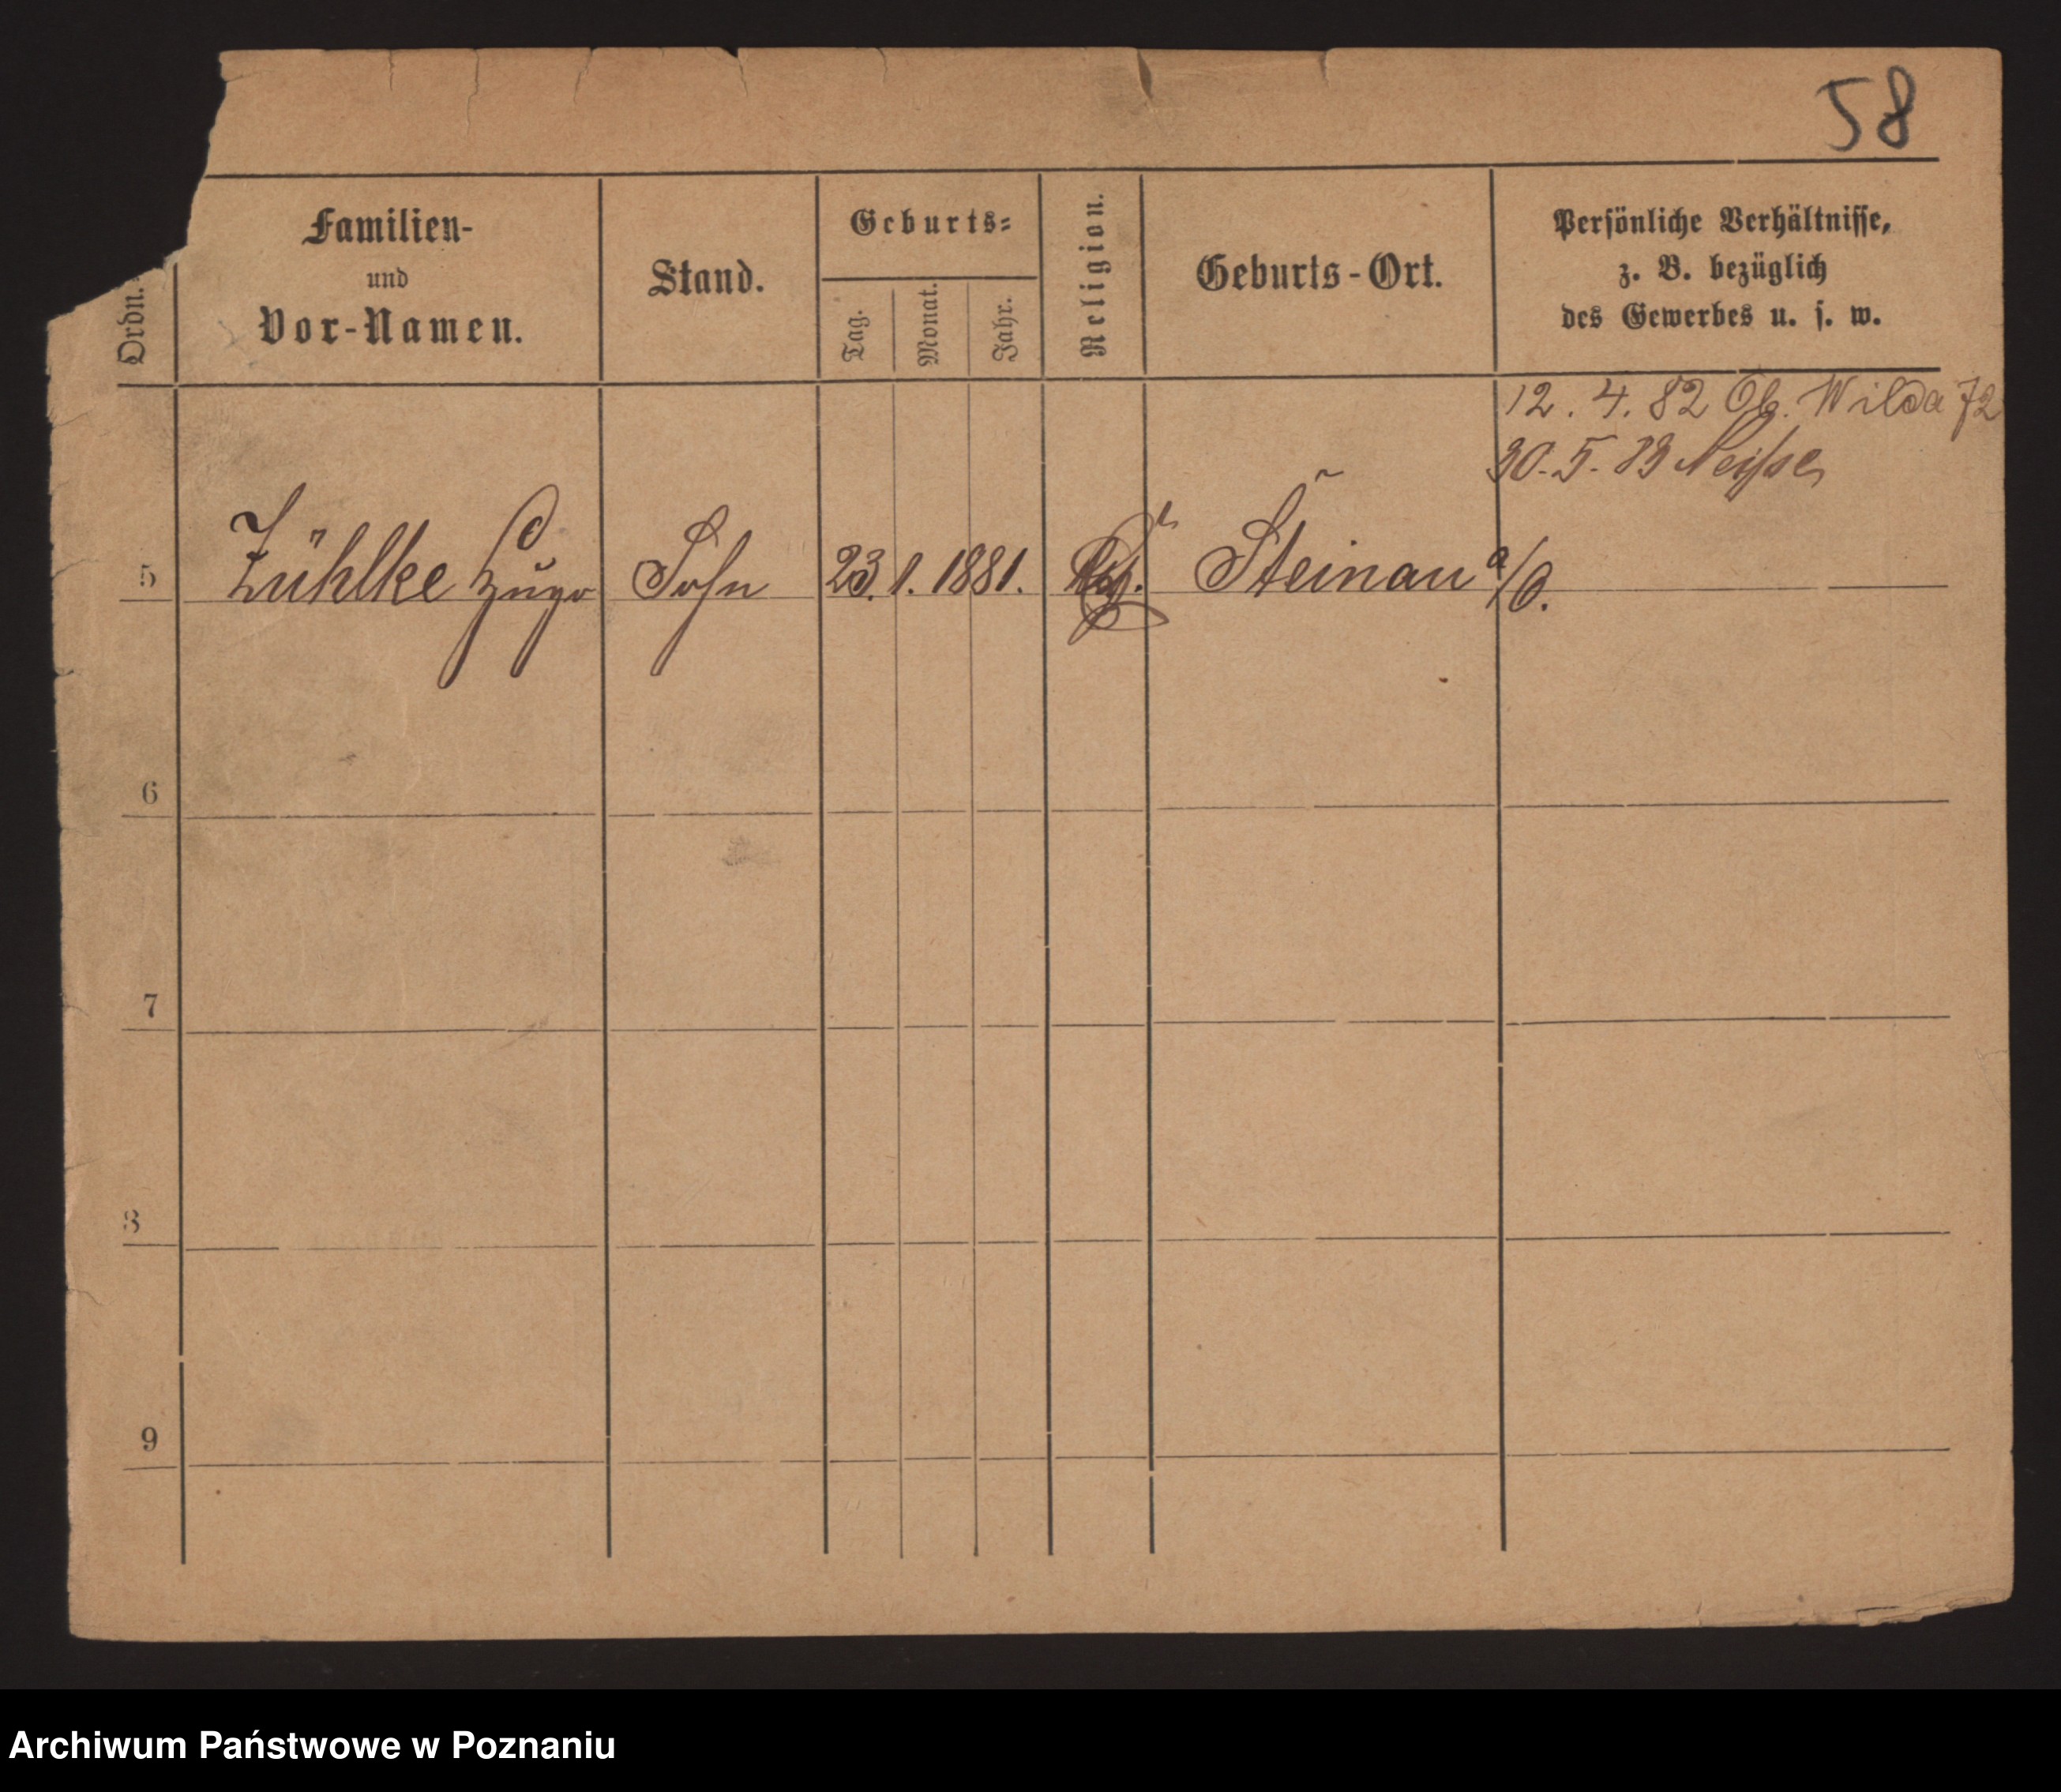 58
Ordn.
Familien-
und
Vor-Namen.
Stand.
Geburts-
Tag.
Monat.
Jahr.
Religion.
Geburts-Ort.
Persönliche Verhältnisse,
z. B. bezüglich
des Gewerbes u. s. w.
12. 4. 82 Ob. Wilda 72
30. 5. 83 Neisse
5 Zühlke Hugo Sohn 23. 1. 1881. Steinau a/O.
6
7
8
9
Archiwum Państwowe w Poznaniu